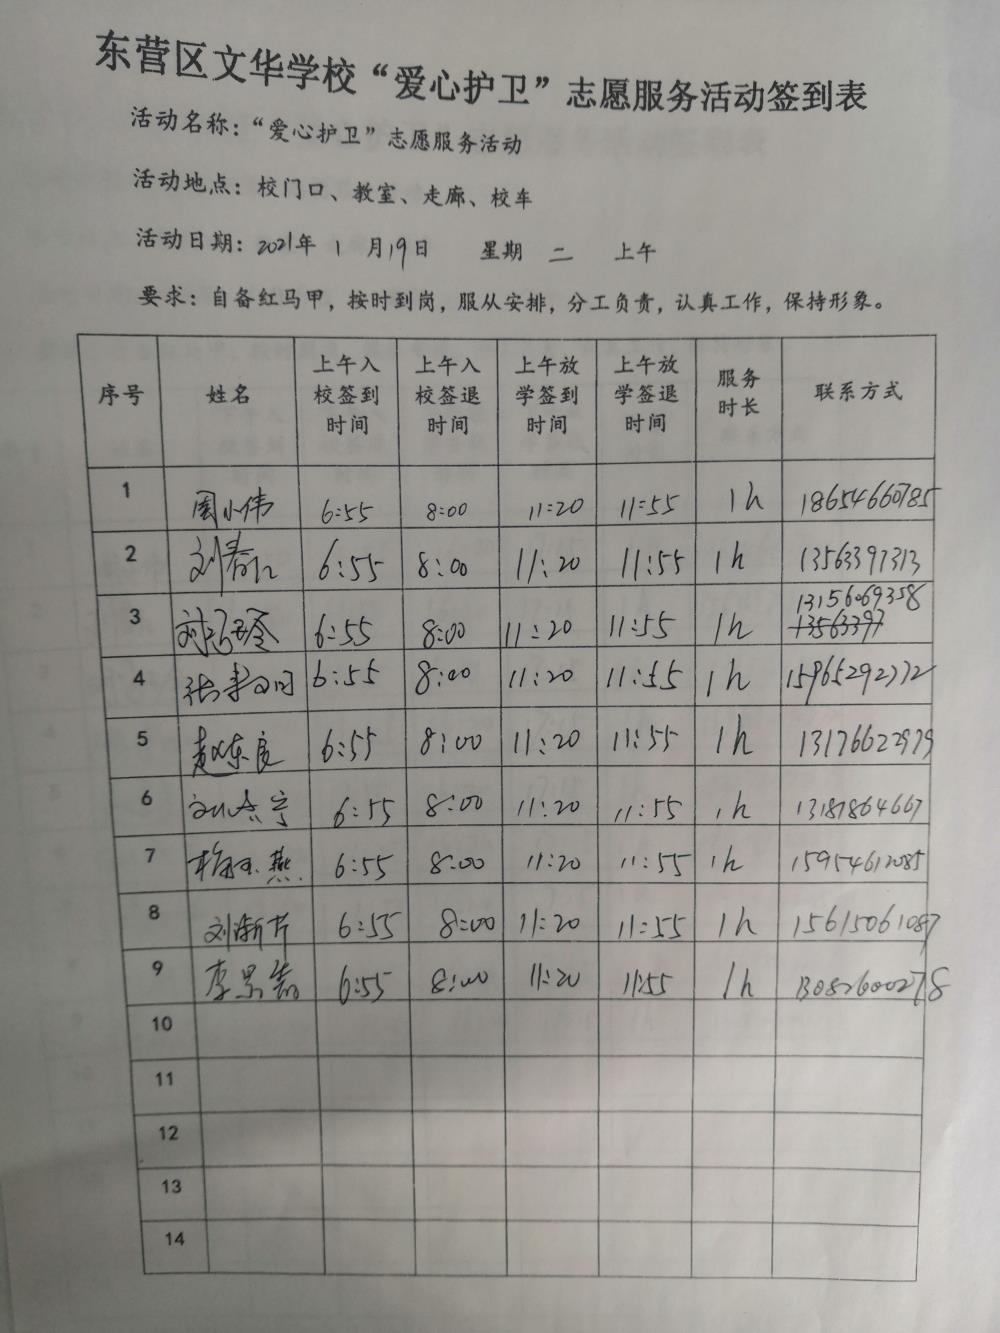 东营区文华学校“爱心护卫”志愿服务活动签到表
活动名称：“爱心护卫”志愿服务活动
活动地点：校门口、教室、走廊、校车
活动日期：2021年 1 月19日 星期 二 上午
要求：自备红马甲，按时到岗，服从安排，分工负责，认真工作，保持形象。
序号 姓名 上午入校签到时间 上午入校签退时间 上午放学签到时间 上午放学签退时间 服务时长 联系方式
1 周小伟 6:55 8:00 11:20 11:55 1h 18654660785
2 刘春红 6:55 8:00 11:20 11:55 1h 13563397313
3 6:55 8:00 11:20 11:55 1h 13156069358
4 6:55 8:00 11:20 11:55 1h 15965292772
5 赵东良 6:55 8:00 11:20 11:55 1h 13176622979
6 6:55 8:00 11:20 11:55 1h 13187864667
7 6:55 8:00 11:20 11:55 1h 15954612085
8 刘新芹 6:55 8:00 11:20 11:55 1h 15615061087
9 6:55 8:00 11:20 11:55 1h 13082600278
10
11
12
13
14